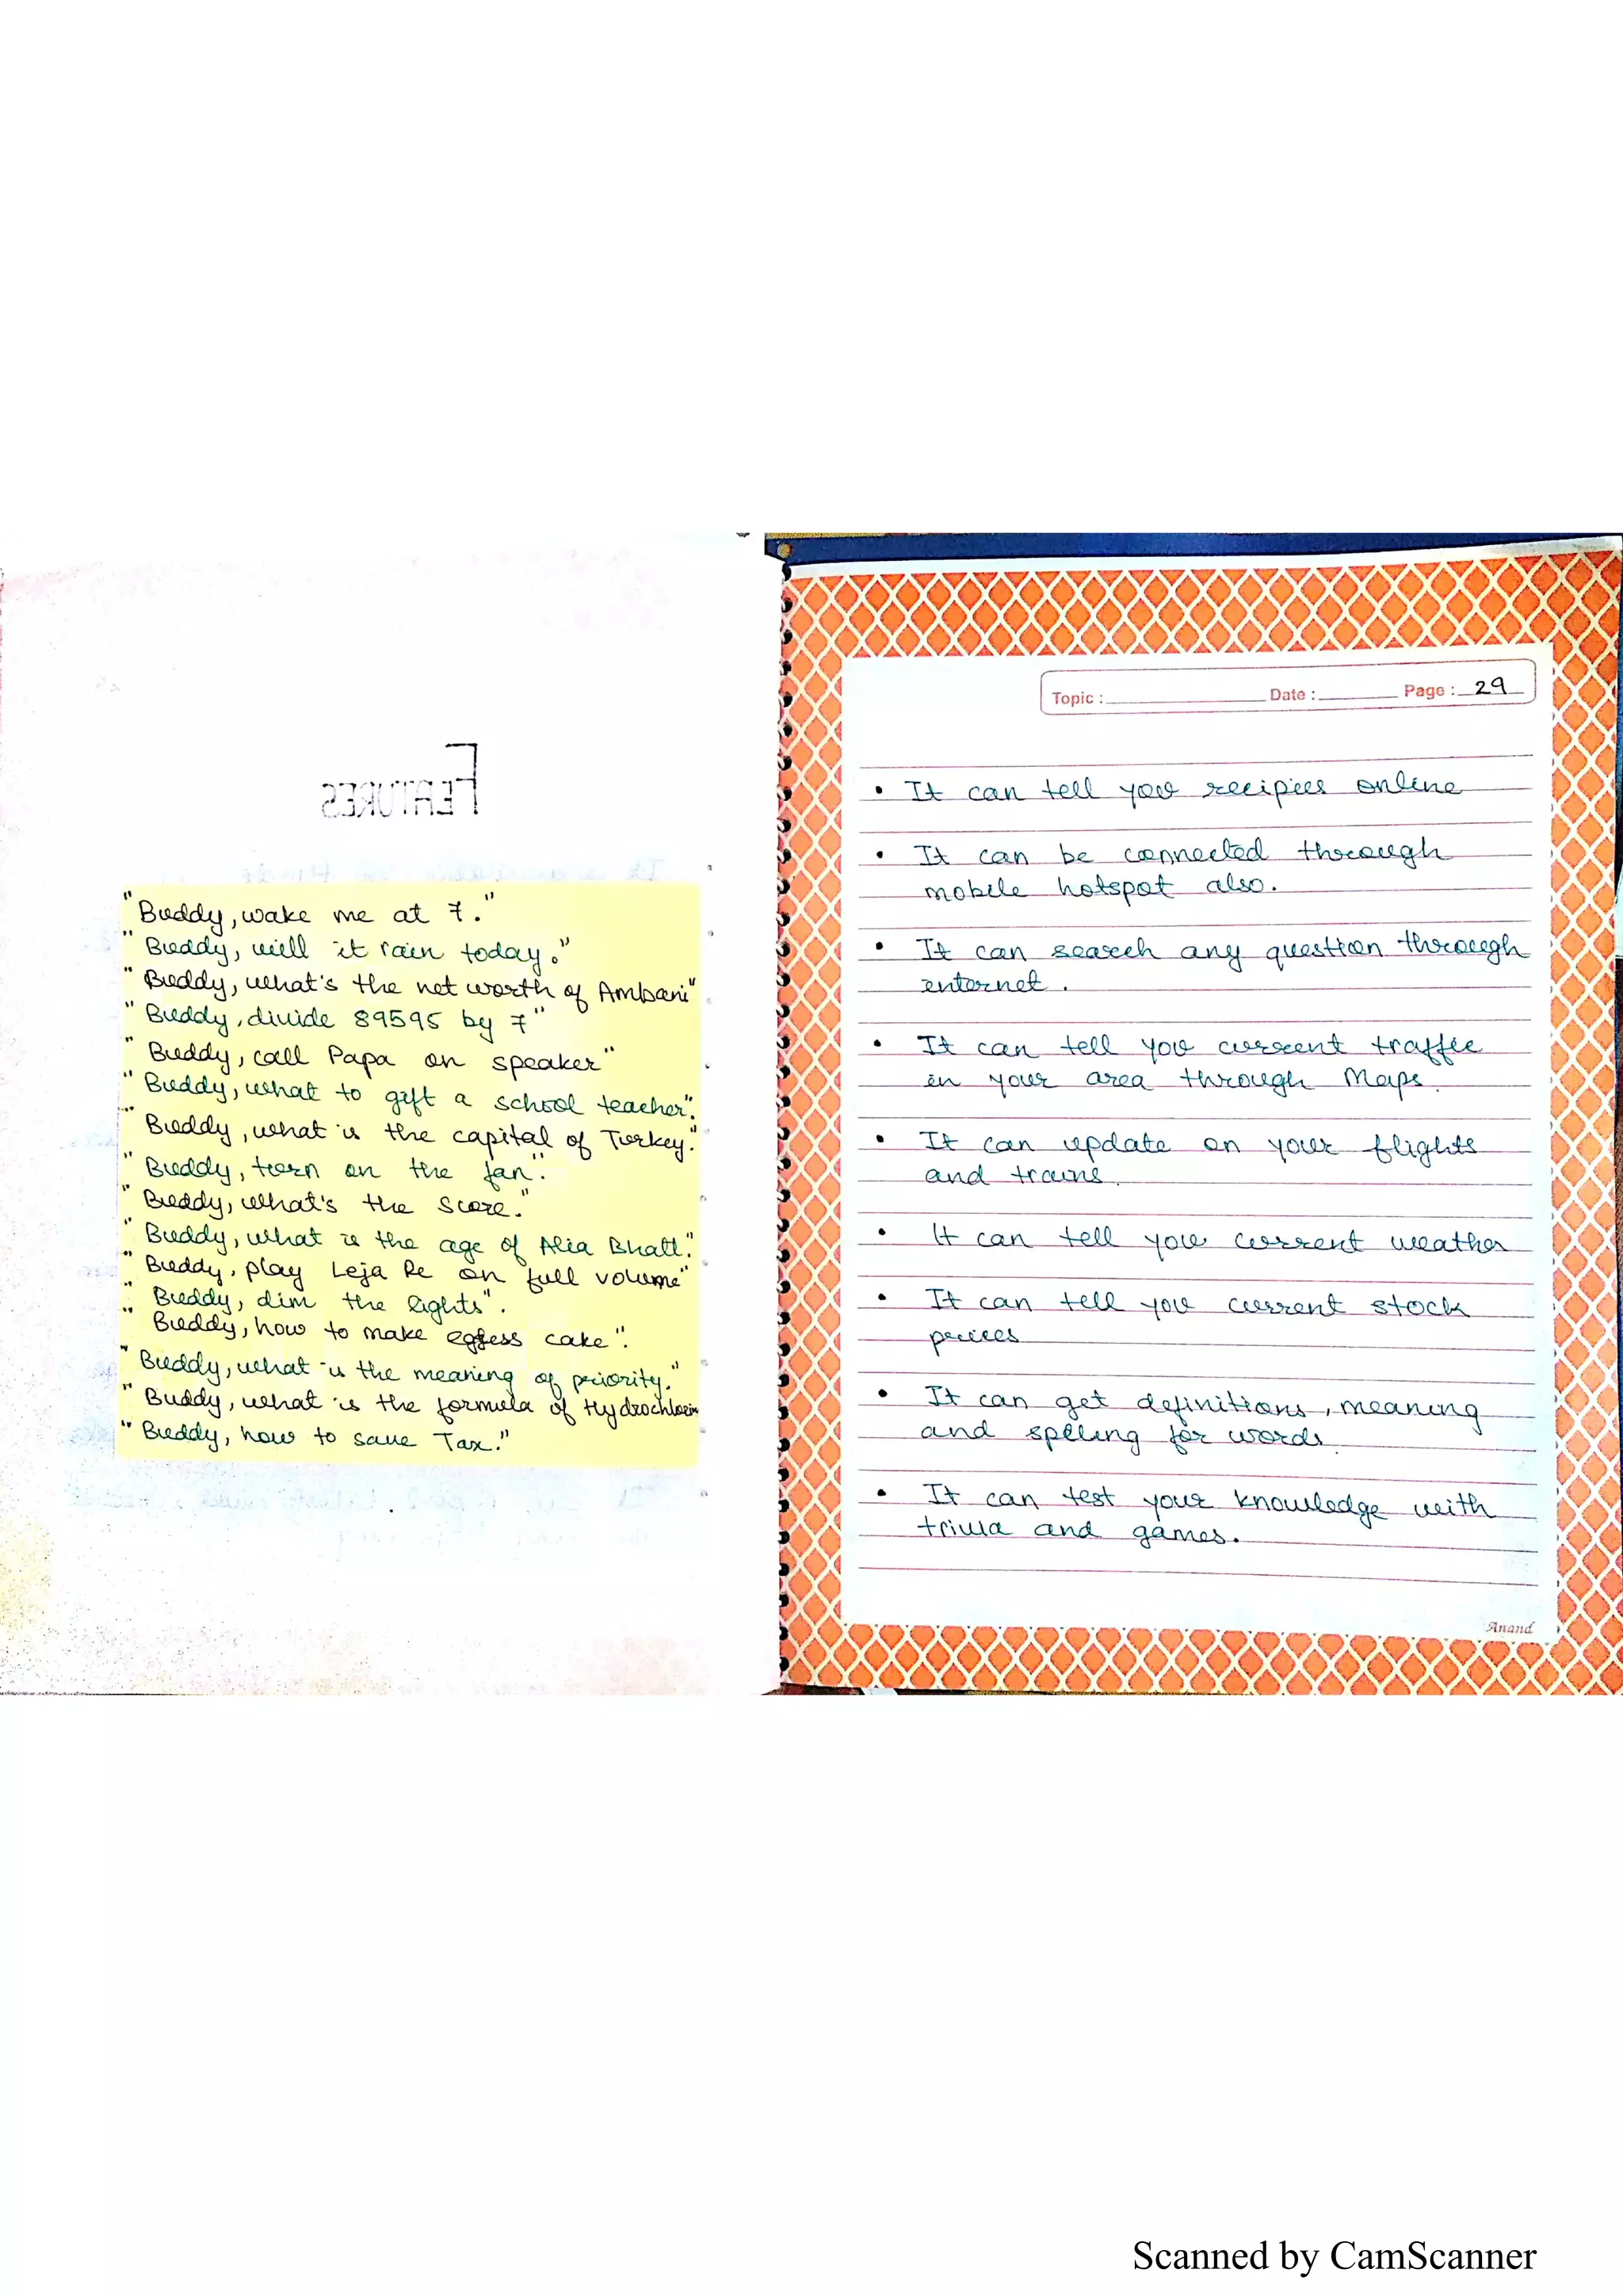 FEATURES
"Buddy, wake me at 7."
"Buddy, will it rain today."
"Buddy, what's the net worth of Ambani"
"Buddy, divide 89595 by 7"
"Buddy, call Papa on speaker"
"Buddy, what to gift a school teacher".
"Buddy, what is the capital of Turkey."
"Buddy, turn on the fan".
"Buddy, what's the score."
"Buddy, what is the age of Alia Bhatt."
"Buddy, play Leja Re on full volume"
"Buddy, dim the lights".
"Buddy, how to make eggless cake".
"Buddy, what is the meaning of priority."
"Buddy, what is the formula of Hydrochloric
"Buddy, how to save Tax."
Topic : Date : Page : 29
• It can tell you recipies online
• It can be connected through
mobile hotspot also.
• It can search any question through
internet.
• It can tell you current traffic
in your area through Maps.
• It can update on your flights
and trains.
• It can tell you current weather
• It can tell you current stock
prices
• It can get definitions, meaning
and spelling for words.
• It can test your knowledge with
trivia and games.
Anand
Scanned by CamScanner